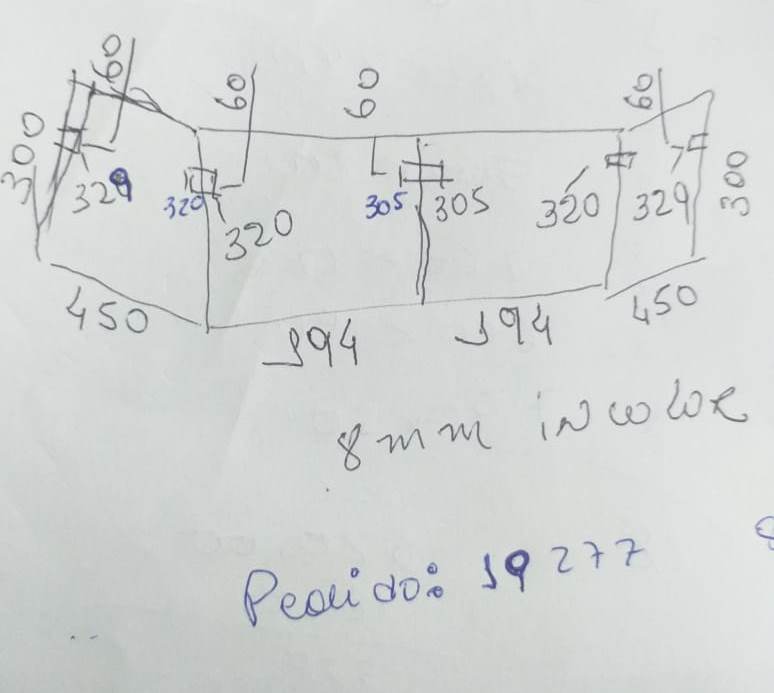 60 60 60 60
300 329 320 320 305 305 320 329 300
450 194 194 450
8mm incolor
Pedido: 19277